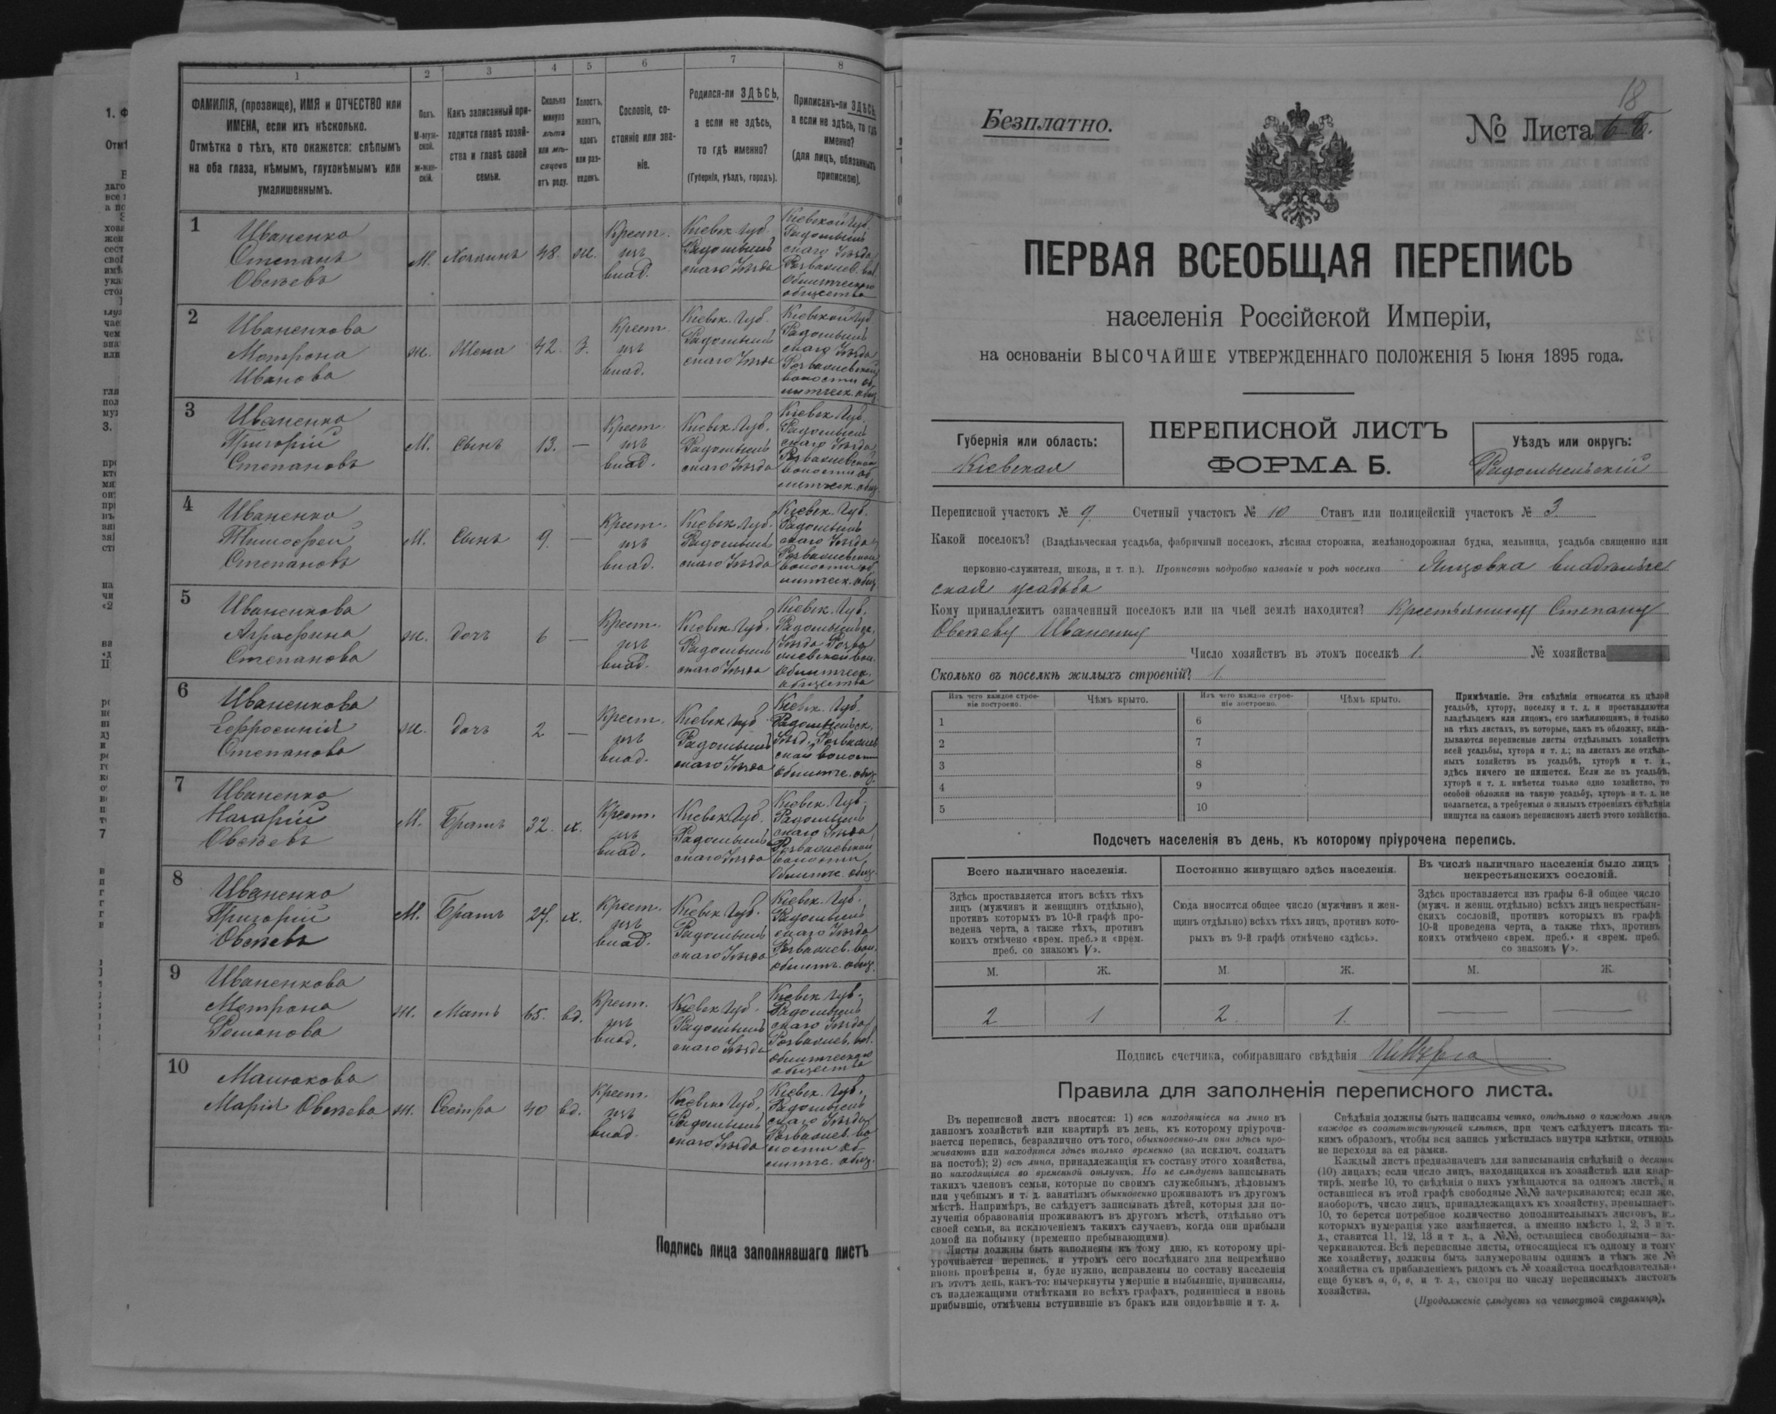 1 2 3 4 5 6 7 8
ФАМИЛІЯ, (прозвище), ИМЯ и ОТЧЕСТВО или
ИМЕНА, если ихъ нѣсколько.
Отмѣтка о тѣхъ, кто окажется: слѣпымъ
на оба глаза, нѣмымъ, глухонѣмымъ или
умалишеннымъ.
Полъ.
М-муж-
ской.
ж-жен-
скій.
Какъ записанный при-
ходится главѣ хозяй-
ства и главѣ своей
семьи.
Сколько
минуло
лѣтъ
или мѣ-
сяцевъ
отъ роду.
Холостъ,
женатъ,
вдовъ
или раз-
веденъ.
Сословіе, со-
стояніе или зва-
ніе.
Родился-ли ЗДѢСЬ,
а если не здѣсь,
то гдѣ именно?
(Губернія, уѣздъ, городъ).
Приписанъ-ли ЗДѢСЬ,
а если не здѣсь, то гдѣ
именно?
(для лицъ, обязанныхъ
припиской).
1
Иваненко
Степанъ
Овсѣевъ
М. Хозяинъ 48. ж.
Крест.
изъ
влад.
Кіевск. Губ.
Радомысль
скаго Уѣзда
Кіевской Губ.
Радомысль
скаго Уѣзда
2
Иваненкова
Мотрона
Иванова
ж. Жена 42. З.
Крест.
изъ
влад.
Кіевск. Губ.
Радомысль
скаго Уѣзда
Кіевской Губ.
Радомысль
скаго Уѣзда
3
Иваненко
Григорій
Степановъ
М. Сынъ 13. —
Крест.
изъ
влад.
Кіевск. Губ.
Радомысль
скаго Уѣзда
Кіевск. Губ.
Радомысль
скаго Уѣзда
4
Иваненко
Тимофей
Степановъ
М. Сынъ 9. —
Крест.
изъ
влад.
Кіевск. Губ.
Радомысль
скаго Уѣзда
Кіевск. Губ.
Радомысль
скаго Уѣзда
5
Иваненкова
Аграфина
Степанова
ж. дочь 6 —
Крест.
изъ
влад.
Кіевск. Губ.
Радомысль
скаго Уѣзда
Кіевск. Губ.
6
Иваненкова
Ефросинія
Степанова
ж. дочь 2 —
Крест.
изъ
влад.
Кіевск. Губ.
Радомысль
скаго Уѣзда
Кіевск. Губ.
7
Иваненко
Назарій
Овсѣевъ
М. Братъ 32. х.
Крест.
изъ
влад.
Кіевск. Губ.
Радомысль
скаго Уѣзда
Кіевск. Губ.
Радомысль
скаго Уѣзда
8
Иваненко
Григорій
Овсѣевъ
М. Братъ 27. х.
Крест.
изъ
влад.
Кіевск. Губ.
Радомысль
скаго Уѣзда
Кіевск. Губ.
Радомысль
скаго Уѣзда
9
Иваненкова
Мотрона
Романова
ж. Мать 65. вд.
Крест.
изъ
влад.
Кіевск. Губ.
Радомысль
скаго Уѣзда
Кіевск. Губ.
Радомысль
скаго Уѣзда
10
Марія Овсѣева
ж. Сестра 40 вд.
Крест.
изъ
влад.
Кіевск. Губ.
Радомысль
скаго Уѣзда
Кіевск. Губ.
Радомысль
скаго Уѣзда
Подпись лица заполнявшаго листъ
18
Безплатно.
№ Листа
ПЕРВАЯ ВСЕОБЩАЯ ПЕРЕПИСЬ
населенія Россійской Имперіи,
на основаніи ВЫСОЧАЙШЕ УТВЕРЖДЕННАГО ПОЛОЖЕНІЯ 5 Іюня 1895 года.
Губернія или область:
Кіевская
ПЕРЕПИСНОЙ ЛИСТЪ
ФОРМА Б.
Уѣздъ или округъ:
Радомысльскій
Переписной участокъ № 9. Счетный участокъ № 10 Станъ или полицейскій участокъ № 3
Какой поселокъ? (Владѣльческая усадьба, фабричный поселокъ, лѣсная сторожка, желѣзнодорожная будка, мельница, усадьба священно или
церковно-служителя, школа, и т. п.). Прописать подробно названіе и родъ поселка владѣльче
ская усадьба
Кому принадлежитъ означенный поселокъ или на чьей землѣ находится? Крестьянину Степану
Овсѣеву Иваненку
Число хозяйствъ въ этомъ поселкѣ 1. № хозяйства
Сколько въ поселкѣ жилыхъ строеній? 1.
Изъ чего каждое строе-
ніе построено.
Чѣмъ крыто.
Изъ чего каждое строе-
ніе построено.
Чѣмъ крыто.
1 6
2 7
3 8
4 9
5 10
Примѣчаніе. Эти свѣдѣнія относятся къ цѣлой
усадьбѣ, хутору, поселку и т. д. и проставляются
владѣльцемъ или лицомъ, его замѣняющимъ, и только
на тѣхъ листахъ, въ которые, какъ въ обложку, вкла-
дываются переписные листы отдѣльныхъ хозяйствъ
всей усадьбы, хутора и т. д.; на листахъ же отдѣль-
ныхъ хозяйствъ въ усадьбѣ, хуторѣ и т. д.,
здѣсь ничего не пишется. Если же въ усадьбѣ,
хуторѣ и т. д. имѣется только одно хозяйство, то
особой обложки на такую усадьбу, хуторъ и т. д. не
полагается, а требуемыя о жилыхъ строеніяхъ свѣдѣнія
пишутся на самомъ переписномъ листѣ этого хозяйства.
Подсчетъ населенія въ день, къ которому пріурочена перепись.
Всего наличнаго населенія.
Здѣсь проставляется итогъ всѣхъ тѣхъ
лицъ (мужчинъ и женщинъ отдѣльно),
противъ которыхъ въ 10-й графѣ про-
ведена черта, а также тѣхъ, противъ
коихъ отмѣчено «врем. преб.» и «врем.
преб. со знакомъ V».
Постоянно живущаго здѣсь населенія.
Сюда вносится общее число (мужчинъ и жен-
щинъ отдѣльно) всѣхъ тѣхъ лицъ, противъ кото-
рыхъ въ 9-й графѣ отмѣчено «здѣсь».
Въ числѣ наличнаго населенія было лицъ
некрестьянскихъ сословій.
Здѣсь проставляется изъ графы 6-й общее число
(мужч. и женщ. отдѣльно) всѣхъ лицъ некрестьян-
скихъ сословій, противъ которыхъ въ графѣ
10-й проведена черта, а также тѣхъ, противъ
коихъ отмѣчено «врем. преб.» и «врем. преб.
со знакомъ V».
М. Ж. М. Ж. М. Ж.
2 1 2 1. — —
Подпись счетчика, собиравшаго свѣдѣнія
Правила для заполненія переписного листа.
Въ переписной листъ вносятся: 1) всѣ находящіеся на лицо въ
данномъ хозяйствѣ или квартирѣ въ день, къ которому пріурочи-
вается перепись, безразлично отъ того, обыкновенно-ли они здѣсь про-
живаютъ или находятся здѣсь только временно (за исключ. солдатъ
на постоѣ); 2) всѣ лица, принадлежащія къ составу этого хозяйства,
но находящіяся во временной отлучкѣ. Но не слѣдуетъ записывать
такихъ членовъ семьи, которые по своимъ служебнымъ, дѣловымъ
или учебнымъ и т. д. занятіямъ обыкновенно проживаютъ въ другомъ
мѣстѣ. Напримѣръ, не слѣдуетъ записывать дѣтей, которыя для по-
лученія образованія проживаютъ въ другомъ мѣстѣ, отдѣльно отъ
своей семьи, за исключеніемъ такихъ случаевъ, когда они прибыли
домой на побывку (временно пребывающими).
Листы должны быть заполнены къ тому дню, къ которому прі-
урочивается перепись, и утромъ сего послѣдняго дня непремѣнно
вновь провѣрены и, буде нужно, исправлены по составу населенія
въ этотъ день, какъ-то: вычеркнуты умершіе и выбывшіе, приписаны,
съ надлежащими отмѣтками во всѣхъ графахъ, родившіеся и вновь
прибывшіе, отмѣчены вступившіе въ бракъ или овдовѣвшіе и т. д.
Свѣдѣнія должны быть написаны четко, отдѣльно о каждомъ лицѣ
каждое въ соотвѣтствующей клѣткѣ, при чемъ слѣдуетъ писать та-
кимъ образомъ, чтобы вся запись умѣстилась внутри клѣтки, отнюдь
не переходя за ея рамки.
Каждый листъ предназначенъ для записыванія свѣдѣній о десяти
(10) лицахъ; если число лицъ, находящихся въ хозяйствѣ или квар-
тирѣ, менѣе 10, то свѣдѣнія о нихъ умѣщаются на одномъ листѣ, и
оставшіеся въ этой графѣ свободные №№ зачеркиваются; если же,
наоборотъ, число лицъ, принадлежащихъ къ хозяйству, превышаетъ
10, то берется потребное количество дополнительныхъ листовъ, въ
которыхъ нумерація уже измѣняется, а именно вмѣсто 1, 2, 3 и т.
д., ставится 11, 12, 13 и т д., а №№, оставшіеся свободными—за-
черкиваются. Всѣ переписные листы, относящіеся къ одному и тому
же хозяйству, должны быть занумерованы однимъ и тѣмъ же №
хозяйства съ прибавленіемъ рядомъ съ № хозяйства послѣдовательно
еще буквъ а, б, в, и т. д., смотря по числу переписныхъ листовъ
хозяйства.
(Продолженіе слѣдуетъ на четвертой страницѣ).